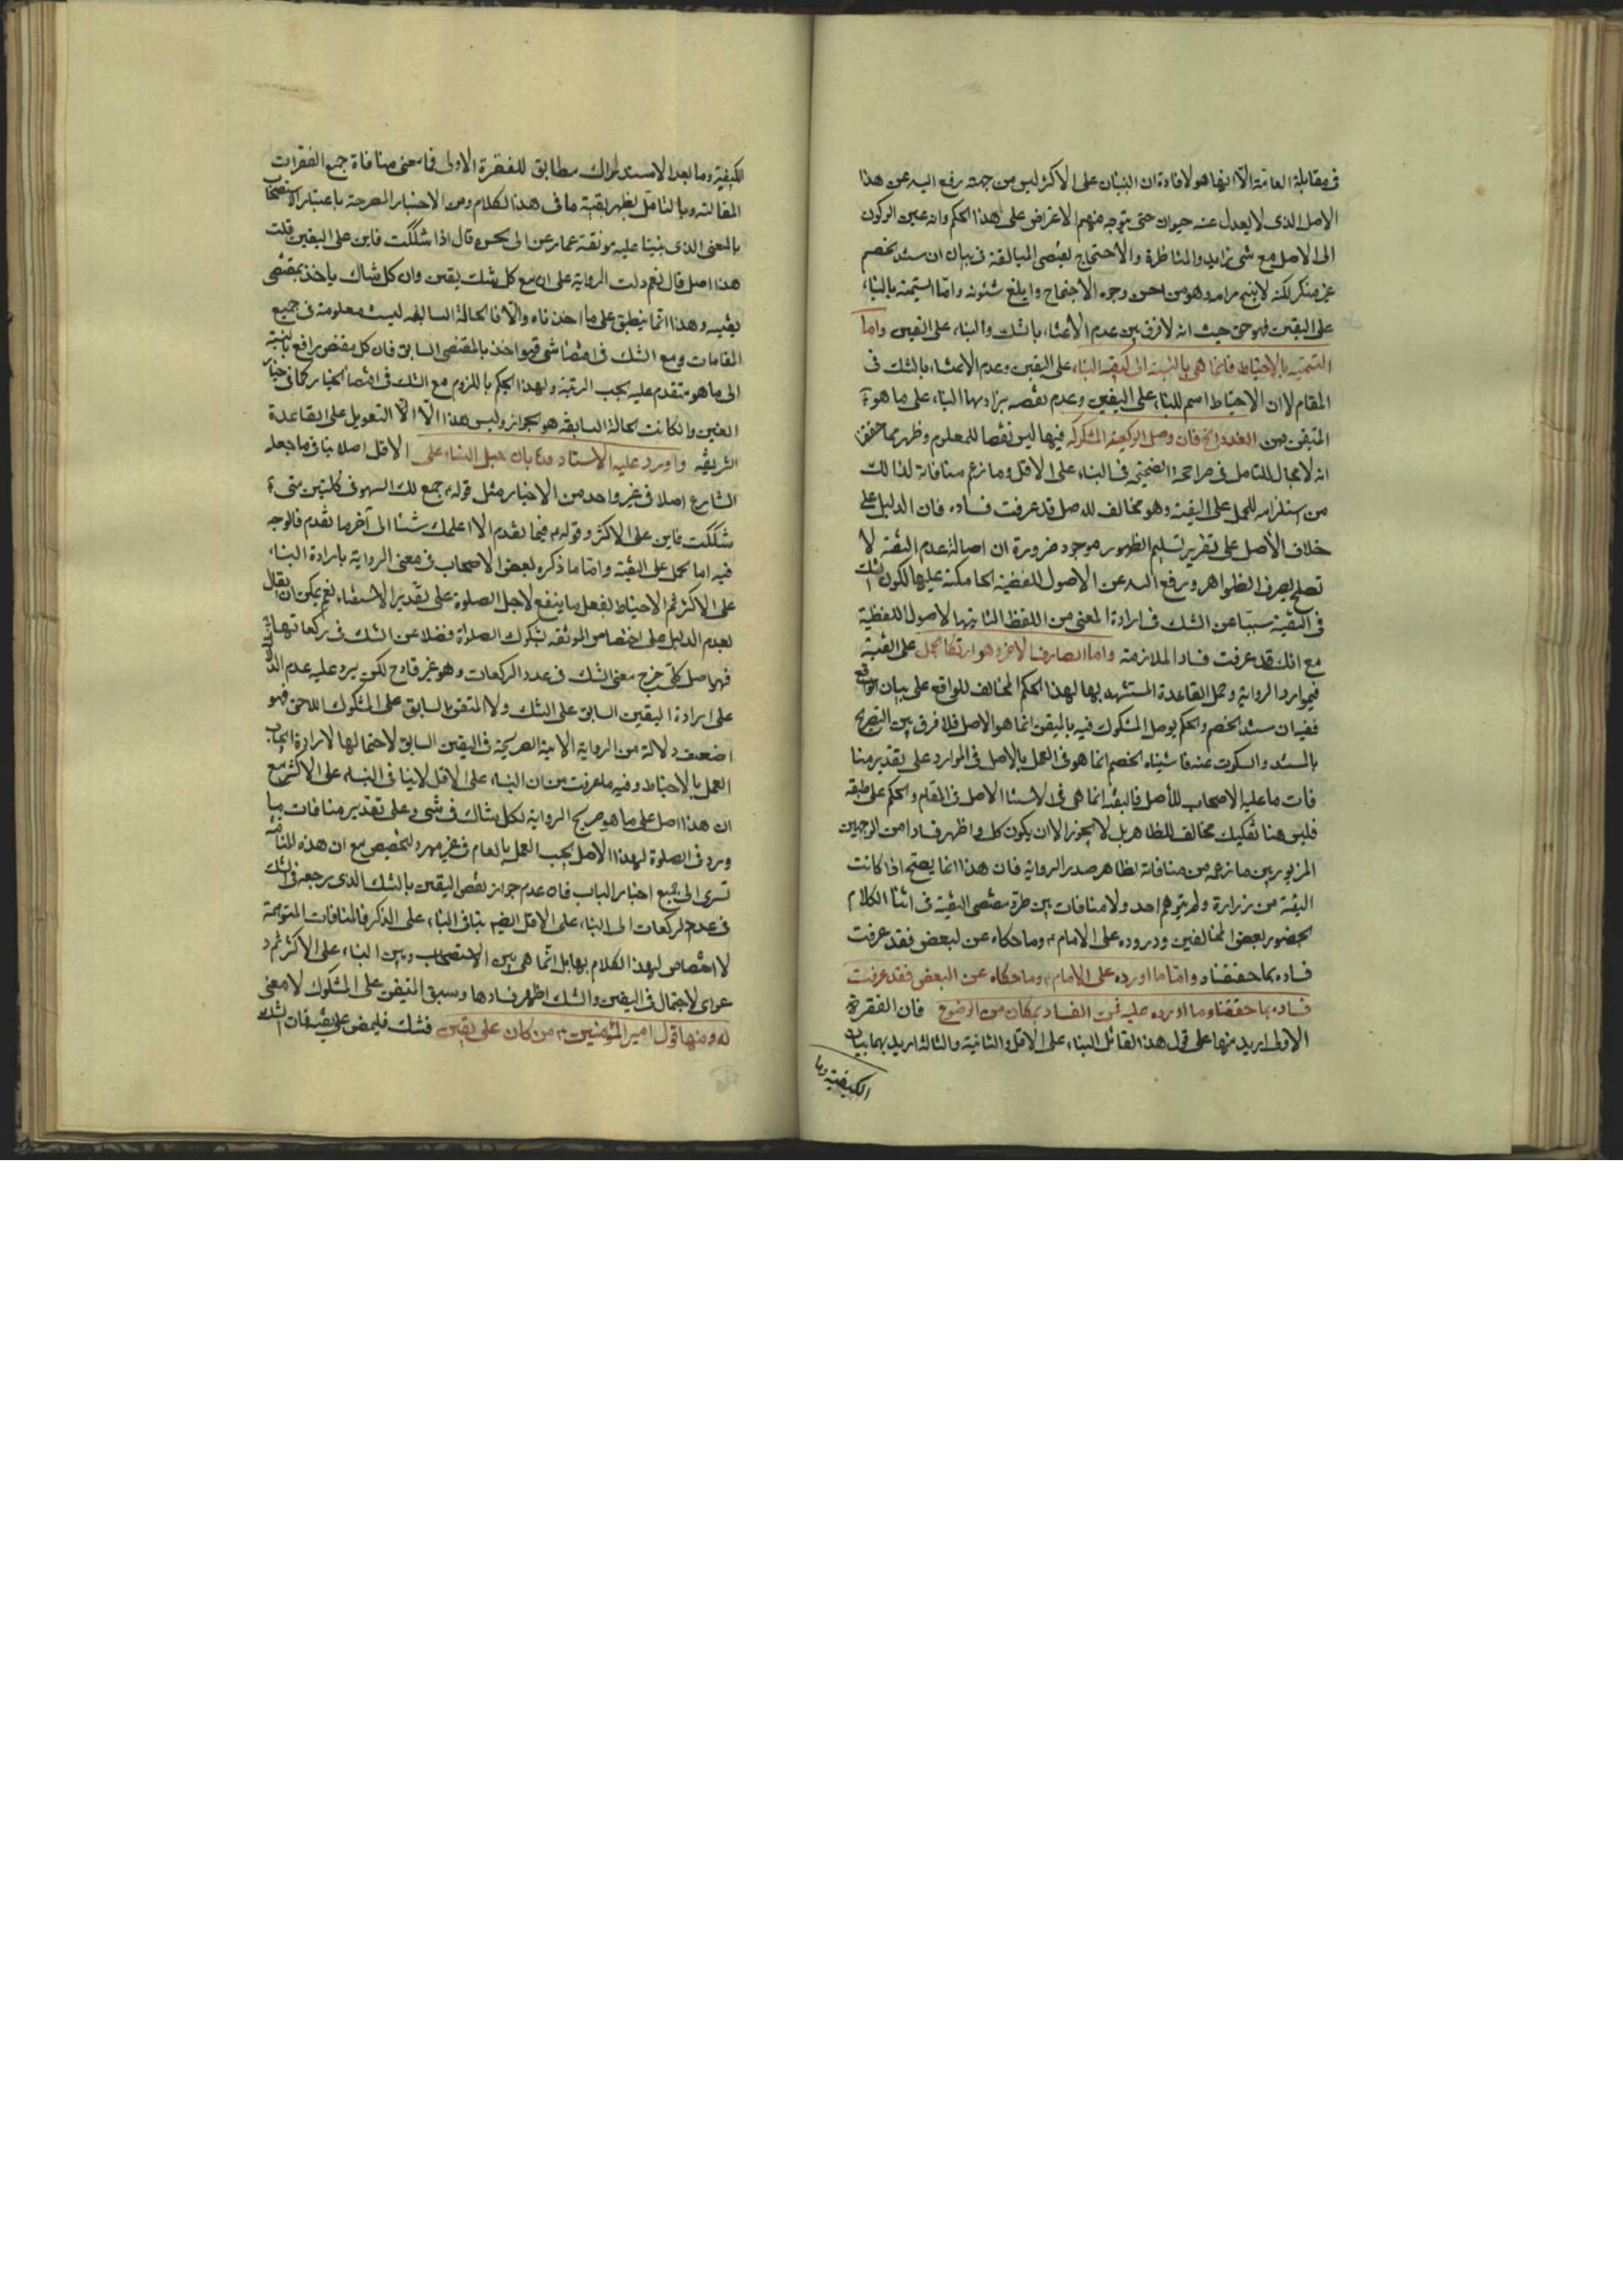 في مقابلة العامة الا انها هو لافادة ان البنيان على الاكثر ليس من جهة رفع اليد عن هذا
الاصل الذى لا يعدل عنه حيوان حتى يتوجه منهم الاعتراض على هذا الحكم وانه عين الركون
الى الاصل مع شى زايد والمناظرة والاحتجاج يقتضى المبالغة في بيان ان سند الخصم
غير منكر لكنه لا ينتج مرامه وهو من احسن وجوه الاحتجاج وابلغ شئونه واما التسمية بالبناء
على اليقين فهو حق حيث انه لا فرق بين عدم الاعتناء بالشك والبناء على اليقين واما
التسمية بالاحتياط فانما هى بالنسبة الى كيفية البناء على اليقين وعدم الاعتناء بالشك في
المقام لا ان الاحتياط اسم للبناء على اليقين وعدم نقصه يراد بها البناء على ما هو
المتيقن من العدد الخ فان وصل الركعة المشكوكة فيها ليس نقضا للمعلوم وظهر مما حققنا
انه لا مجال للتامل في صراحة الصحيحة في البناء على الاقل وما زعم منافاته لذالك
من استلزامه للحمل على التقية وهو مخالف للاصل قد عرفت فساده فان الدليل على
خلاف الأصل على تقرير تسليم الظهور موجود ضرورة ان اصالة عدم التقية لا
تصلح لصرف الظواهر ورفع اليد عن الاصول اللفظية الحاكمة عليها لكون الشك
في التقية سببا عن الشك في ارادة المعنى من اللفظ الثابتها لاصول اللفظية
مع انك قد عرفت فساد الملازمة واما الصارف الاخر وهو ارتكاب الحمل على التقية
في موارد الرواية وحمل القاعدة المستشهد بها لهذا الحكم المخالف للواقع على بيان الواقع
ففيه ان سند الخصم والحكم بوصل المشكوك فيه بالمتيقن انما هو الاصل فلا فرق بين التصريح
بالسند والسكوت عنه فاشيناه الخصم انما هو في العمل بالاصل في الموارد على تقدير منا
فات ما عليه الاصحاب للأصل فالتقية انما هى في الاستنا الاصل في المقام والحكم على طبقه
فليس هنا تفكيك مخالف للظاهر بل لا يجوز الا ان يكون كل و اظهر فسادا من الوجهين
المزبورين ما زعمه من منافاته لظاهر صدر الرواية فان هذا انما يصح اذا كانت
التقية من زرارة ولم يتوهم احد ولا منافات بين طرو مقتضى التقية في اثناء الكلام
لحضور بعض المخالفين ووروده على الامام ع وما حكاه عن لبعض فقد عرفت
فساده بما حققناه واما ما اورده على الامام ع وما حكاه عن البعض فقد عرفت
فساده بما حققناه وما اورده عليه فمن الفساد بمكان من الوضوح فان الفقرة
الاولى اريد منها على قول هذا القائل البناء على الاقل والثانية والثالثة اريد بهما بيان
الكيفية وما
الكيفية وما بعد الاستدراك مطابق للفقرة الاولى فما معنى منافاة جمع الفقرات
المقالته وبالتامل يظهر بقية ما في هذا الكلام ومن الاخبار المصرحة باعتبار الاستصحاب
بالمعنى الذى بنينا عليه موثقة عمار عن ابى الحسن قال اذا شككت فابن على اليقين قلت
هذا اصل قال نعم دلت الرواية على ان مع كل شك يقين وان كل شاك ياخذ بمقتضى
يقينه وهذا انما ينطبق على ما اخترناه والا فالحالة السابقة ليست معلومة في جميع
المقامات ومع الشك في اقتضا شى فهو اخذ بالمقتضى السابق فان كل مقتض رافع بالنسبة
الى ما هو متقدم عليه بحسب الرتبة ولهذا الحكم باللزوم مع الشك في اقتضا الخيار كما في خيار
الغبن والا كانت الحالة السابقة هو الجواز وليس هذا الا التعويل على القاعدة
الشريفة واورد عليه الاستاد قده بان جعل البناء على الاقل اصلا ينافى ما جعله
الشارع اصلا في غير واحد من الاخبار مثل قوله ع جمع لك السهو في كلمتين متى
شككت فابن على الاكثر وقوله ع فيما تقدم الا اعلمك شيئا الى آخر ما تقدم فالوجه
فيه اما يحمل على التقية واما ما ذكره بعض الاصحاب في معنى الرواية بارادة البناء
على الاكثر ثم الاحتياط بفعل ما ينفع لاجل الصلوة على تقدير الاستغناء نعم يمكن ان يقال
بعدم الدليل على اختصاص الموثقة بشكوك الصلواة فضلا عن الشك في ركعاتها
فهو اصل كلى خرج معنى الشك في عدد الركعات وهو غير قادح لكن يرد عليه عدم الدلالة
على ارادة اليقين السابق على الشك ولا المتيقن السابق على المشكوك اللاحق فهو
اضعف دلالة من الرواية الاتية الصريحة في اليقين السابق لاحتمالها لارادة ايجاب
العمل بالاحتياط وفيه ما عرفت من ان البناء على الاقل لا ينافى البناء على الاكثر مع
ان هذا اصل على ما هو صريح الرواية لكل شاك في شى وعلى تقدير منافات ما
ورد في الصلوة لهذا الاصل يجب العمل بالعام في غير مورد التخصيص مع ان هذه المنافاة
تسرى الى جميع اخبار الباب فان عدم جواز نقض اليقين بالشك الذى يرجعه في الشك
في عدد الركعات الى البناء على الاقل ايضا ينافى البناء على الاكثر فالمنافات المتوهمة
لا اختصاص لهذا الكلام بها بل انما هى بين الاستصحاب وبين البناء على الاكثر ثم د
عواى الاجتمال في اليقين والشك اظهر فسادها وسبق المتيقن على المشكوك لا معنى
له ومنها قول امير المؤمنين ع من كان على يقين فشك فليمض على يقينه فان الشك